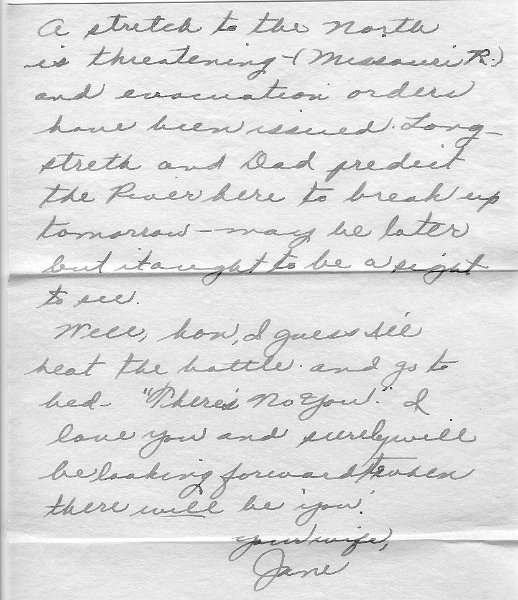 A stretch to the North
is threatening - (Missouri R.)
and evacuation orders
have been issued. Long-
streth and Dad predict
the River here to break up
tomorrow - may be later
but it ought to be a sight
to see.
Well, hon, I guess I'll
heat the bottle and go to
bed - "There's No You." I
love you and surely will
be looking forward to when
there will be 'you'.
Your wife,
Jane